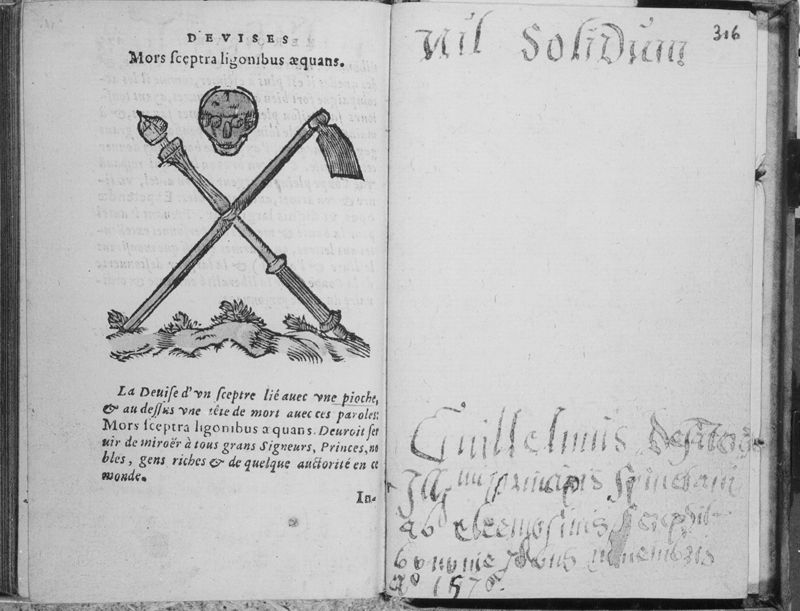 DEVISES.
Mors ſceptra ligonibus æquans.
La Deuiſe d'vn ſceptre lié auec vne pioche,
& au deſſus vne tête de mort auec ces paroles:
Mors ſceptra ligonibus æquans. Deuroit ſer
uir de miroër à tous grans Signeurs, Princes, no
bles, gens riches & de quelque auctorité en ce
monde.
In-
316
Nil Solidum
Guillelmus
Ill principis
ab eleemosinis
1570.